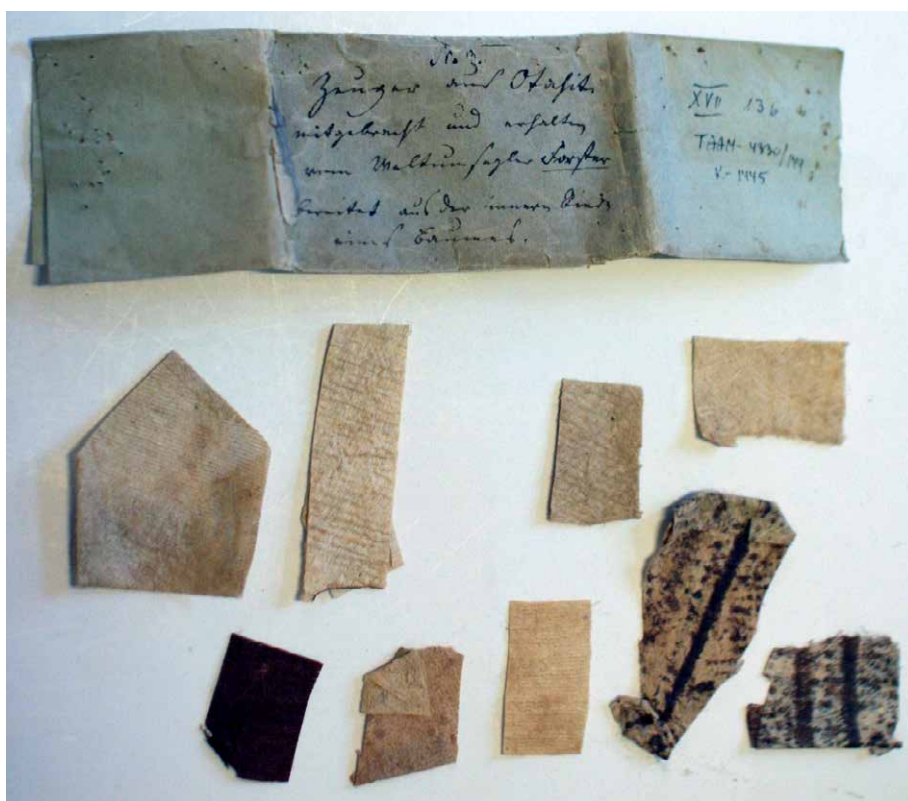 No 3.
Zeuger aus Otahiti
mitgebracht und erhalten
vom Weltumsegler Forster
bereitet aus der innern Rinde
eines Baumes.
XVII 136
V-1445